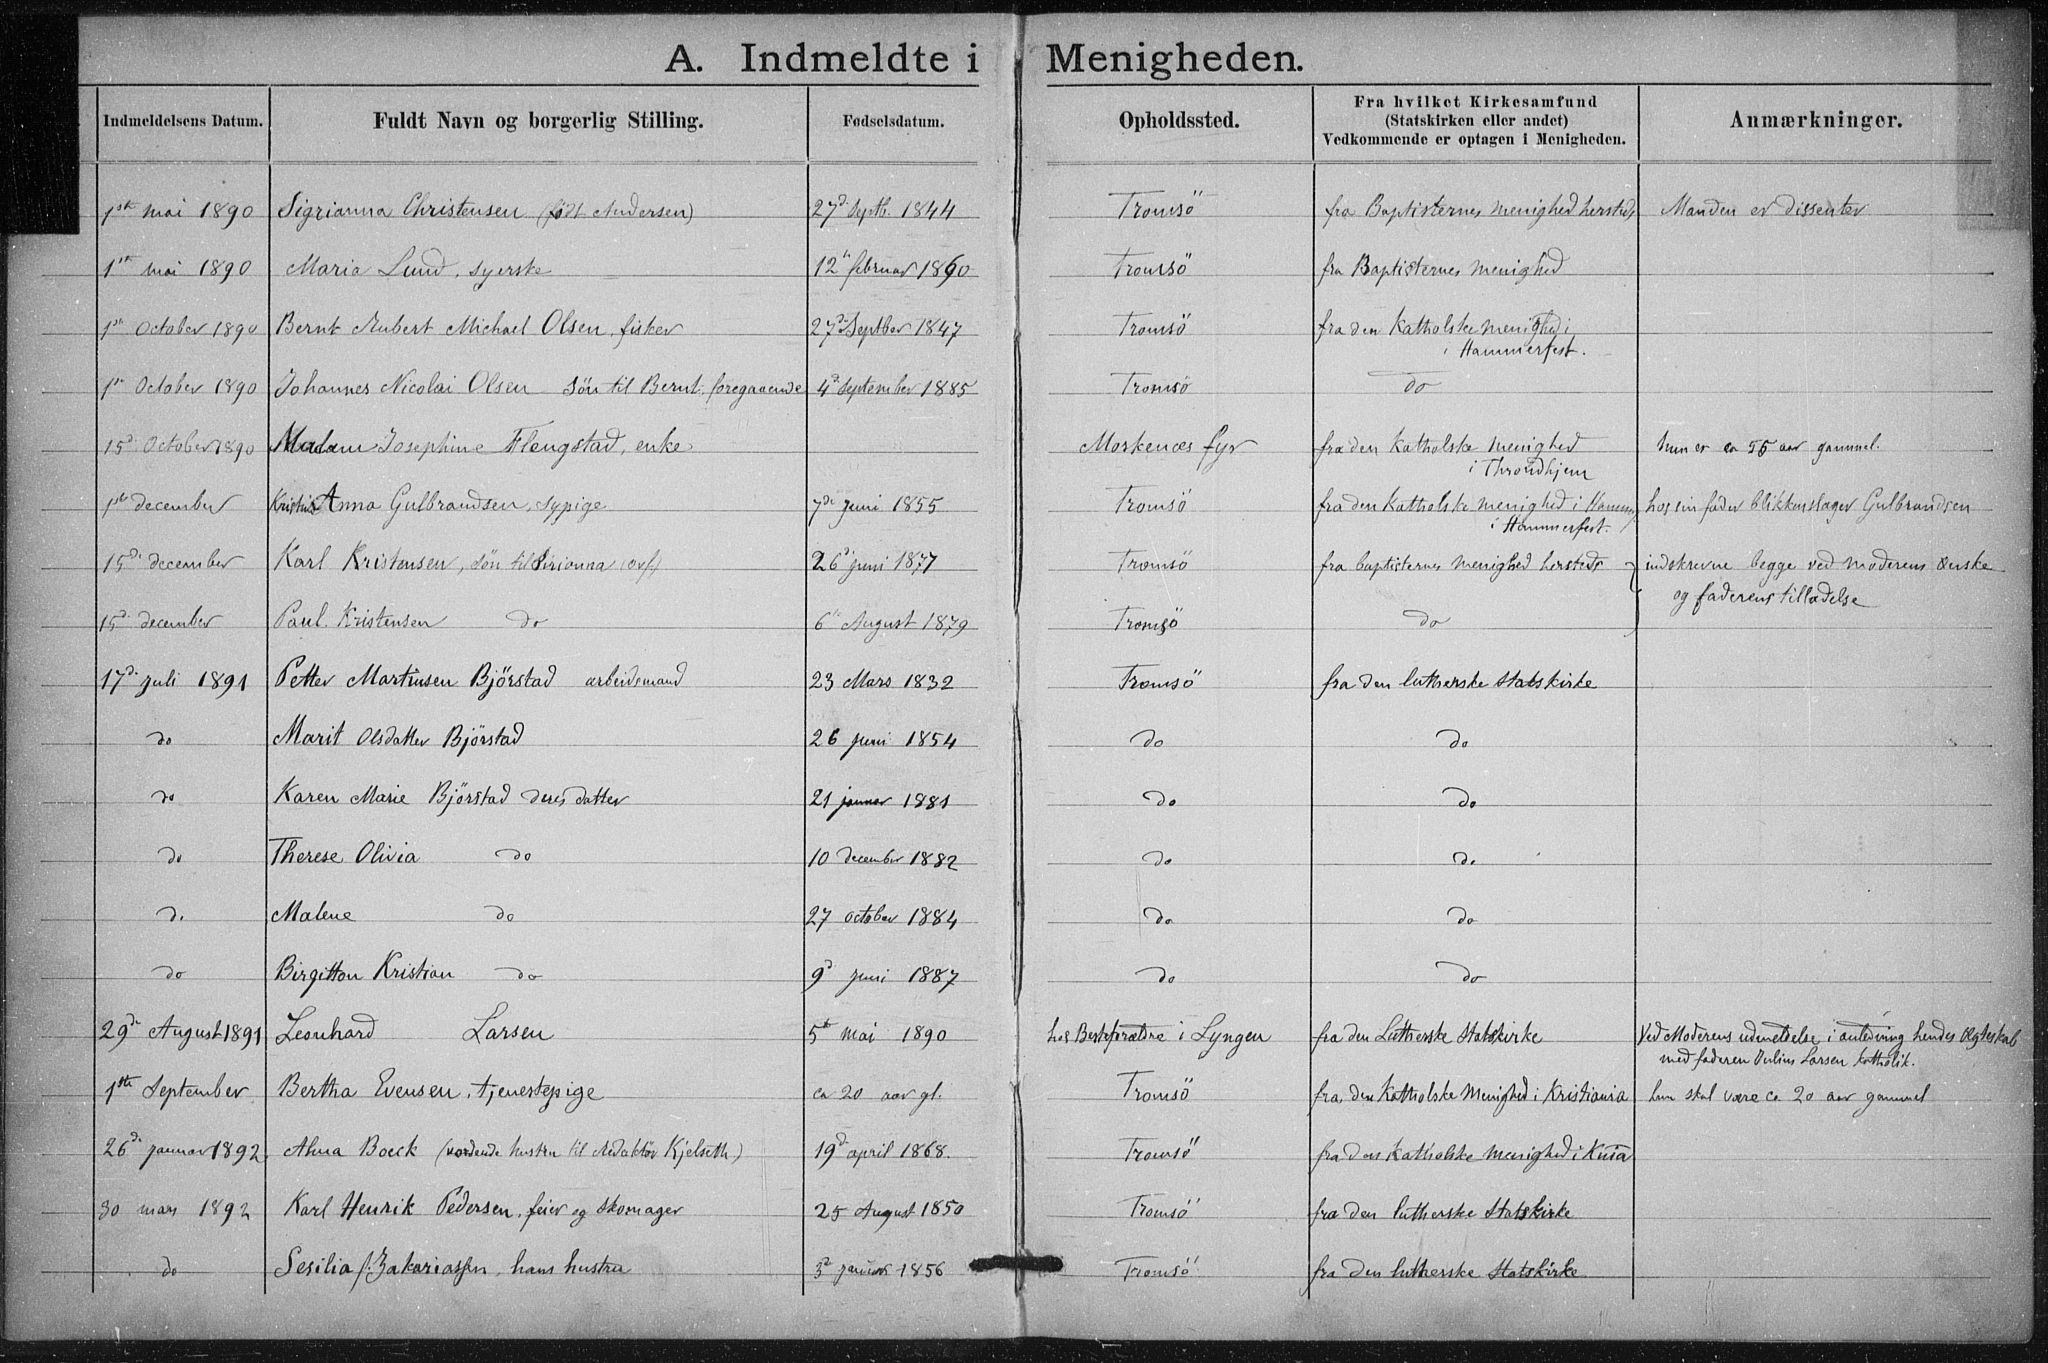 A. Indmeldte i Menigheden.
Indmeldelsens Datum. Fuldt Navn og borgerlig Stilling. Fødselsdatum. Opholdssted. Fra hvilket Kirkesamfund (Statskirken eller andet) Vedkommende er optagen i Menigheden. Anmærkninger.
1ste mai 1890 Sigrianna Christensen (født Andersen) 27d. Septb. 1844 Tromsö fra Baptisternes menighed hersteds Manden er dissenter
1ste mai 1890 Maria Lund, syerske 12te februar 1860 Tromsö fra Baptisternes menighed
1ste October 1890 Bernt Hubert Michael Olsen, fisker 27d. Septber 1847 Tromsö fra den Katholske menighed i
i Hammerfest.
1ste October 1890 Johannes Nicolai Olsen sön til Bernt, foregaaende 4d. September 1885 Tromsö do
15d. October 1890 Madam Josephine Flengstad, enke Moskenæs fyr fra den Katholske menighed hun er ca 55 aar gammel.
i Throndhjem
1ste december Kristine Anna Gulbrandsen, sypige 7de juni 1855 Tromsö fra den Katholske menighed i Hammerf hos sin fader blikkenslager Gulbrandsen
i Hammerfest.
15de december Karl Kristensen, sön til Sirianna (ovf) 26d juni 1877 Tromsö fra baptisternes menighed hersteds indskrevne begge ved moderens Önske
og faderens tilladelse
15d. december Paul Kristensen do 6te August 1879 Tromsö do
17d. juli 1891 Petter Martinsen Björstad arbeidsmand 23 Mars 1832 Tromsö fra den lutherske statskirke
do Marit Olsdatter Björstad 26 juni 1854 do do
do Karen Marie Björstad deres datter 21 januar 1881 do do
do Therese Olivia do 10 december 1882 do do
do Malene do 27 october 1884 do do
do Birgitton Kristian do 9d juni 1887 do do
29de August 1891 Leonhard Larsen 5te mai 1890 hos Besteforældre i Lyngen fra den Lutherske statskirke Ved Moderens udmeldelse i anledning hendes Ægteskab
med faderen Julius Larsen katholik.
1ste September Bertha Evensen, tjenestepige ca 20 aar gl. Tromsö fra den Katholske menighed i Kristiania hun skal være ca 20 aar gammel
26de januar 1892. Alma Boeck (vordende hustru til Redaktör Kjelseth) 19d april 1868. Tromsö fra den katholske menighed i Knia
30 mars 1892 Karl Henrik Pedersen, feier og skomager 25 August 1850 Tromsö fra den lutherske statskirke
do Sesilia f. Zakariassen, hans hustru 3d januar 1856 Tromsö fra den lutherske statskirke